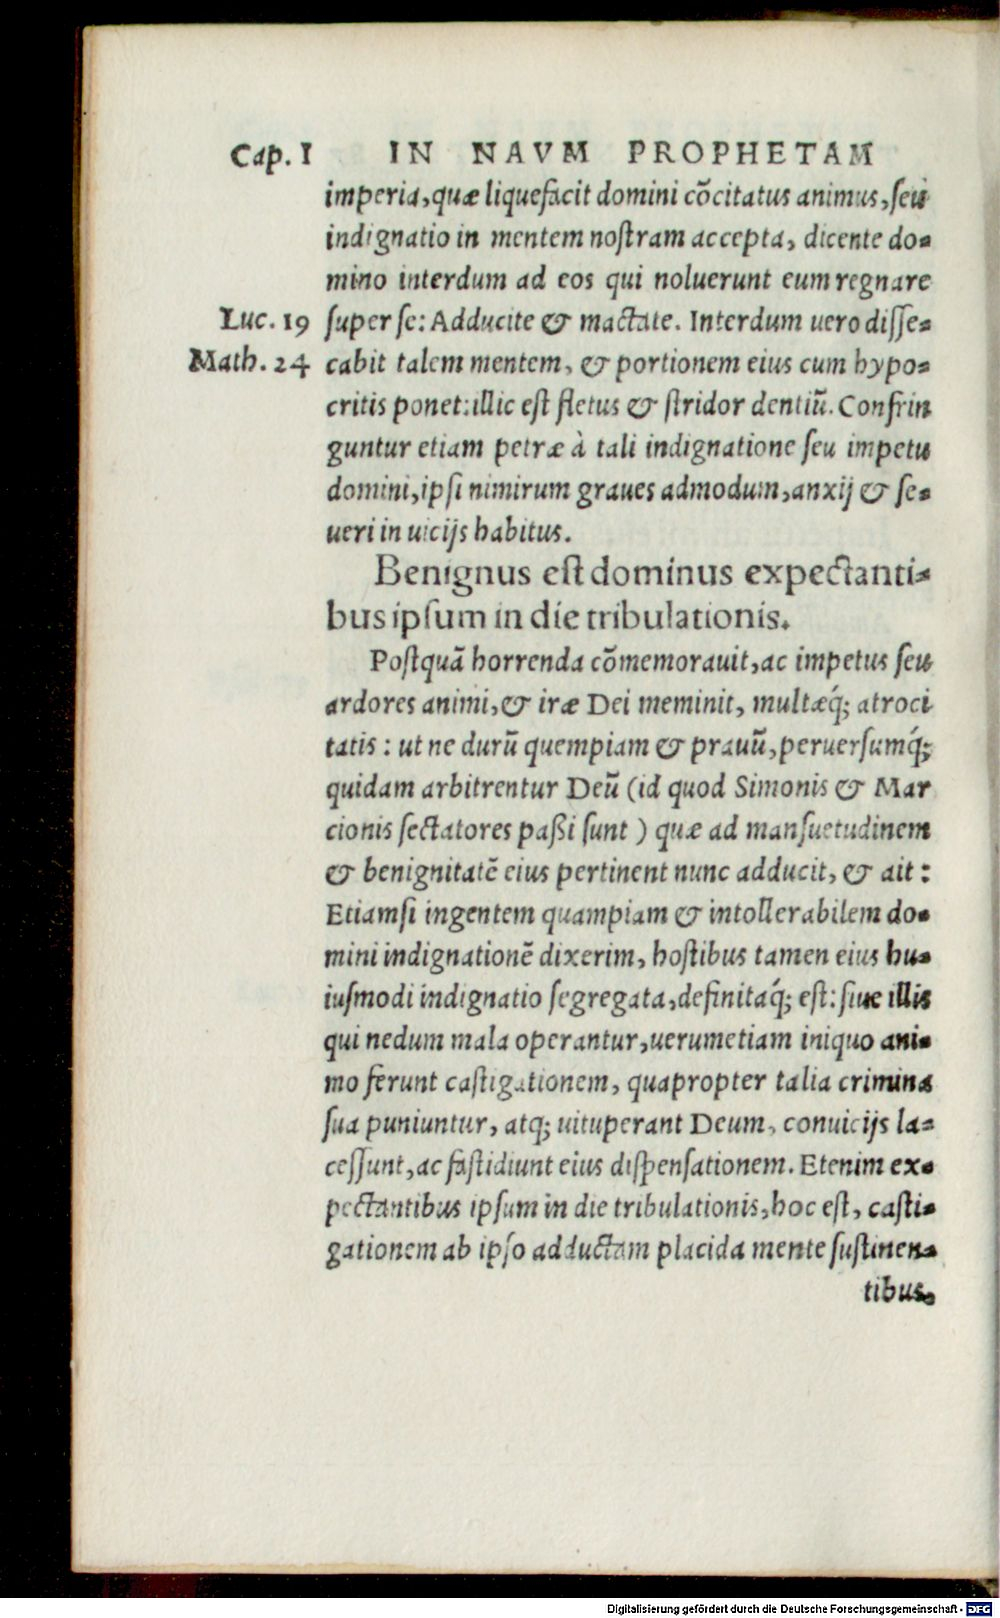 Cap. I IN NAVM PROPHETAM
imperia, quæ liquefacit domini cōcitatus animus, ſeu
indignatio in mentem noſtram accepta, dicente do-
mino interdum ad eos qui noluerunt eum regnare
Luc. 19 ſuper ſe: Adducite & mactate. Interdum uero diſſe-
Math. 24 cabit talem mentem, & portionem eius cum hypo-
critis ponet: illic eſt fletus & ſtridor dentiū. Confrin
guntur etiam petræ à tali indignatione ſeu impetu
domini, ipſi nimirum graues admodum, anxij & ſe-
ueri in uicijs habitus.
Benignus eſt dominus expectanti-
bus ipſum in die tribulationis.
Poſtquā horrenda cōmemorauit, ac impetus ſeu
ardores animi, & iræ Dei meminit, multæq́; atroci
tatis: ut ne durū quempiam & prauū, peruerſumq́;
quidam arbitrentur Deū (id quod Simonis & Mar
cionis ſectatores paßi ſunt) quæ ad manſuetudinem
& benignitatē eius pertinent nunc adducit, & ait:
Etiamſi ingentem quampiam & intollerabilem do-
mini indignationē dixerim, hoſtibus tamen eius hu-
iuſmodi indignatio ſegregata, definitaq́; eſt: ſiue illis
qui nedum mala operantur, uerumetiam iniquo ani-
mo ferunt caſtigationem, quapropter talia crimina
ſua puniuntur, atq; uituperant Deum, conuicijs la-
ceſſunt, ac faſtidiunt eius diſpenſationem. Etenim ex-
pectantibus ipſum in die tribulationis, hoc eſt, caſti-
gationem ab ipſo adductam placida mente ſuſtinen-
tibus.
Digitalisierung gefördert durch die Deutsche Forschungsgemeinschaft - DFG